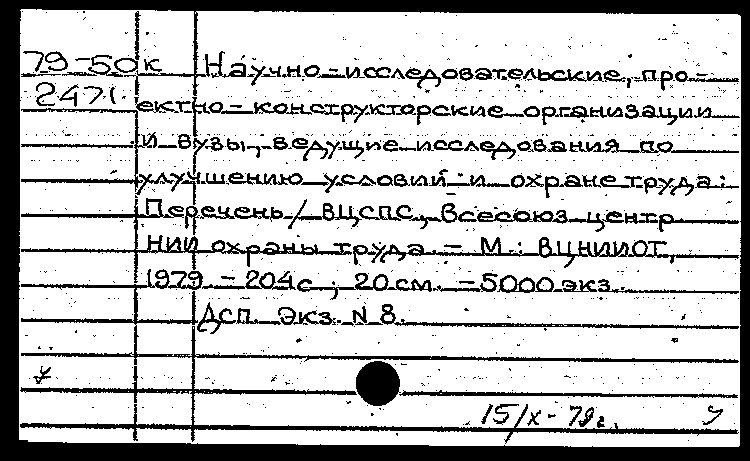 79-50к Научно-исследовательские, про-
2471. ектно-конструкторские организации
и вузы, ведущие исследования по
улучшению условий и охране труда:
Перечень / ВЦСПС, Всесоюз. центр.
НИИ охраны труда. - М.: ВЦНИИОТ,
1979. - 204с.; 20см. - 5000 экз.
Дсп. Экз. N 8.
15/X-79г.